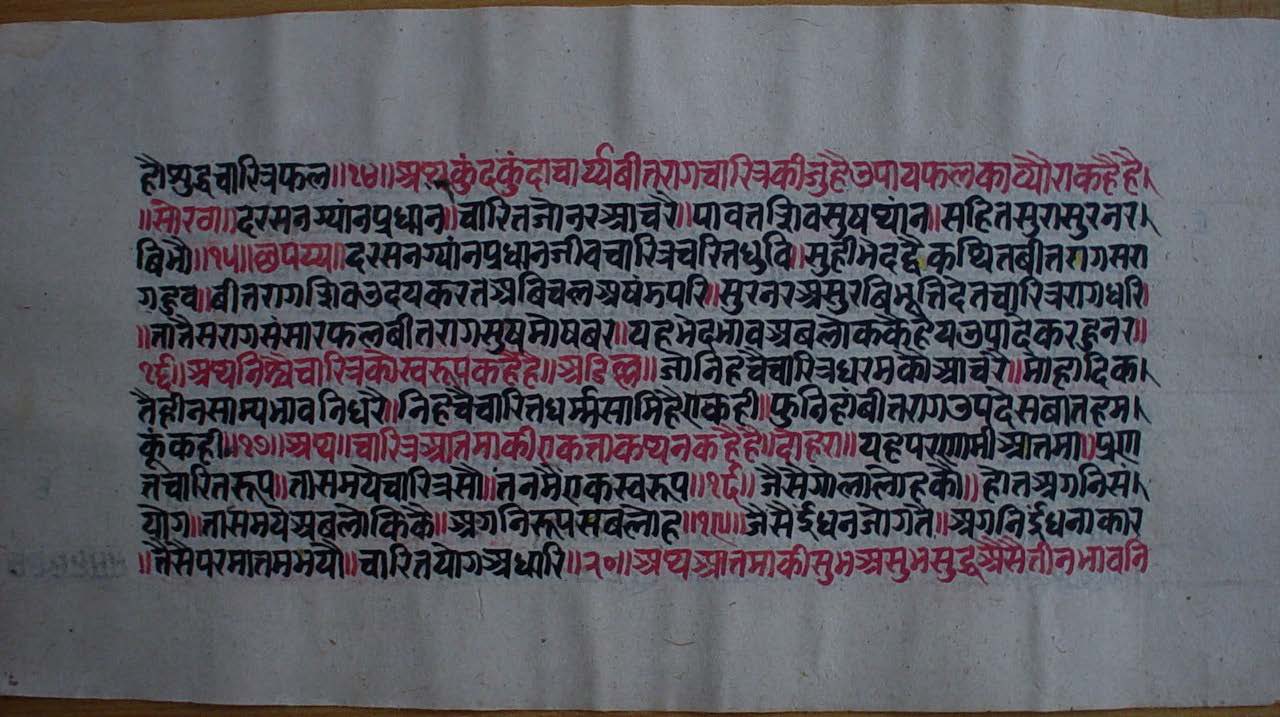 हौशुद्धचारित्रफल॥१४॥अथकुंदकुंदाचार्य्यबीतरागचारित्रकीजुहैउपायफलकाव्यौराकहैहै।
॥सोरठा॥दरसनग्यांनप्रधान॥चारितजोनरआचरै॥पावतशिवसुषथांन॥सहितसुरासुरनर।
बिभौ॥१५॥छपय्य॥दरसनग्यांनप्रधानजीवचारित्रचरितधुवि॥सुहीभेदद्वैकथितबीतरागसरा
गहुव॥बीतरागशिवउदयकरतअबिचलअषंडपरि॥सुरनरअसुरबिभूतिदेतचारित्ररागधरि
॥तातैसरागसंसारफलबीतरागसुषमोषबर॥यहभेदभावअबलोककैहेयउपादेकरहुनर॥
१६॥अथनिश्चैचारित्रकौस्वरूपकहैहै॥अडिल्ल॥जोनिहचैचारित्रधरमकौआचरै॥मोहादिक।
तैहीनसाम्यभावनिधरै॥निहचैचारितधर्म्मसामिहैएकही॥फुनिहीबीतरागउपदेसबातहम।
कूंकही॥१७॥अथ॥चारित्रआतमाकीएकताकथनकहैहै॥दोहरा॥यहपरणामीआतमा॥प्रण
तचारितरूप॥तासमयैचारित्रसौ॥तनमैएकस्वरूप॥१८॥जैसैगोलालोहकौ॥होतअगनिसं।
योग॥तासमयैअबलोकिकै॥अगनिरूपसबलोह॥१९॥जैसैईंधनजोगतै॥अगनिईंधनाकार
॥तैसैपरमातममयौ॥चारितयोगअधारि॥२०॥अथआतमाकीसुभअसुभसुद्धअैसैतीनभावनि